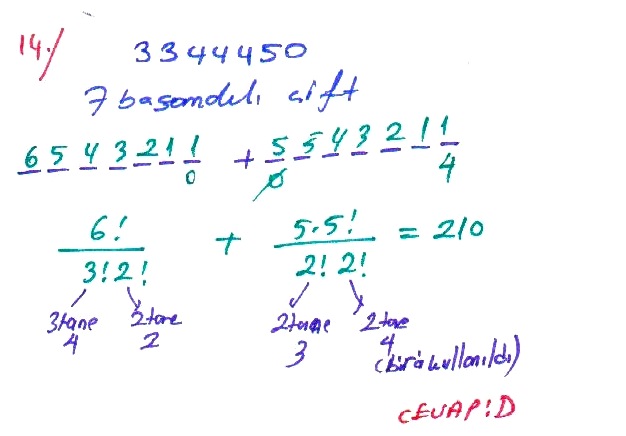 14./ 3344450
7 basamaklı çift
6 5 4 3 2 1 1 + 5 5 4 3 2 1 1
0 0 4
6! + 5.5! = 210
3!2! 2! 2!
3tane 2tane 2tane 2tane
4 2 3 4
(biri kullanıldı)
CEVAP:D